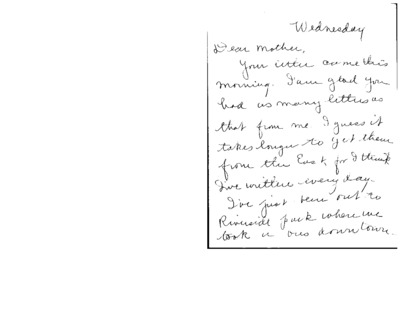 Wednesday
Dear Mother,
Your letter came this
morning. I am glad you
had as many letters as
that from me I guess it
takes longer to get them
from the East, for I think
I've written every day.
I've just been out to
Riverside park where we
took a bus downtown.